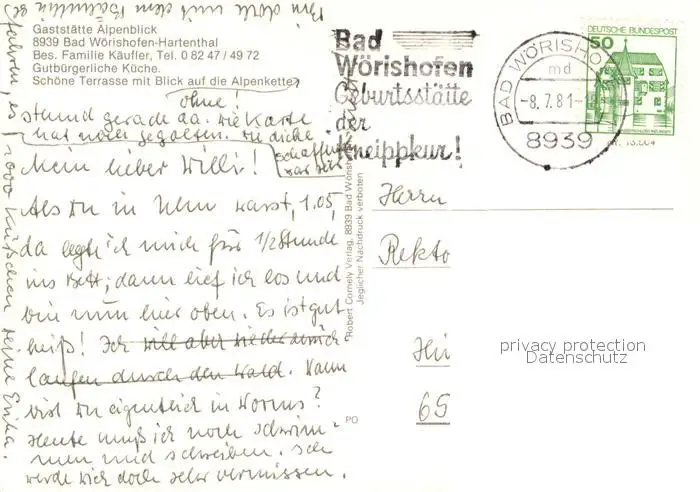 Gaststätte Alpenblick
8939 Bad Wörishofen-Hartenthal
Bes. Familie Käufler, Tel. 0 82 47 / 49 72
Gutbürgerliche Küche.
Schöne Terrasse mit Blick auf die Alpenkette
ohne!
stand gerade da. die Karte
hat
Mein lieber Willi!
Als Du in Ulm warst, 1.05,
da legte ich mich für 1/2 Stunde
ins Bett; dann lief ich los und
bin nun hier oben. Es ist gut
heiß! Ich will aber wieder zurück
laufen durch den Wald. Wann
bist Du eigentlich in Worms?
Heute muß ich noch schwim-
men und schreiben. Ich
werde Dich doch sehr vermissen.
1000 Küßchen Deine Erika.
Robert Cornely Verlag, 8939 Bad Wörishofen
Jeglicher Nachdruck verboten
PO
Bad
Wörishofen
Geburtsstätte
der
Kneippkur!
BAD WÖRISHO
md
-8.7.81-
8939
DEUTSCHE BUNDESPOST
50
Herrn
Rekto
65
privacy protection
Datenschutz